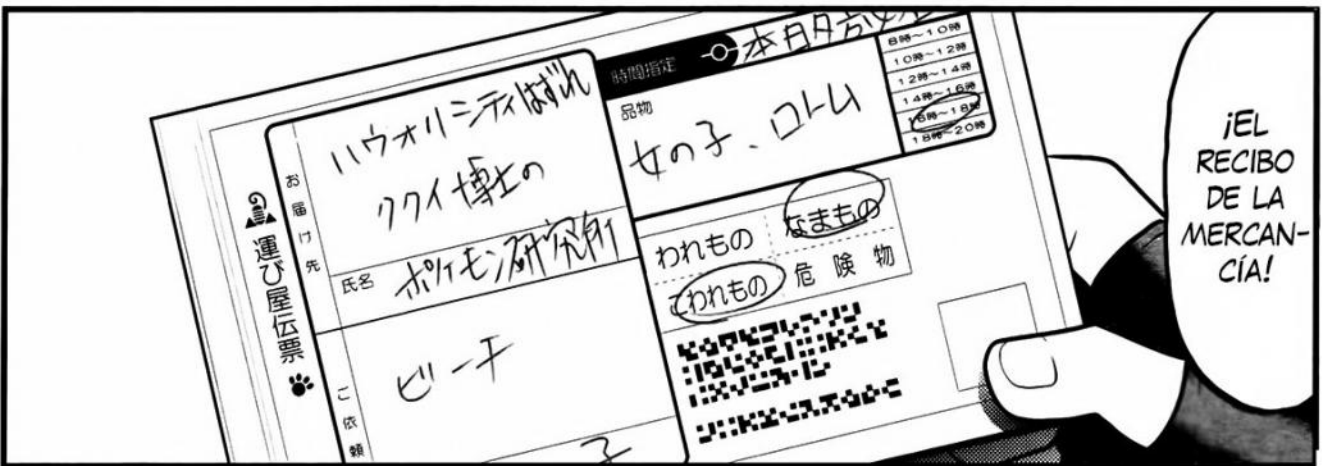 運び屋伝票
お届け先
ハウオリシティはずれ
ククイ博士の
氏名
ポケモン研究所
ご依頼
ビーチ
時間指定
本日夕方
8時〜10時
10時〜12時
12時〜14時
14時〜16時
16時〜18時
18時〜20時
品物
女の子、ロトム
われもの
なまもの
こわれもの
危険物
¡EL
RECIBO
DE LA
MERCAN-
CÍA!